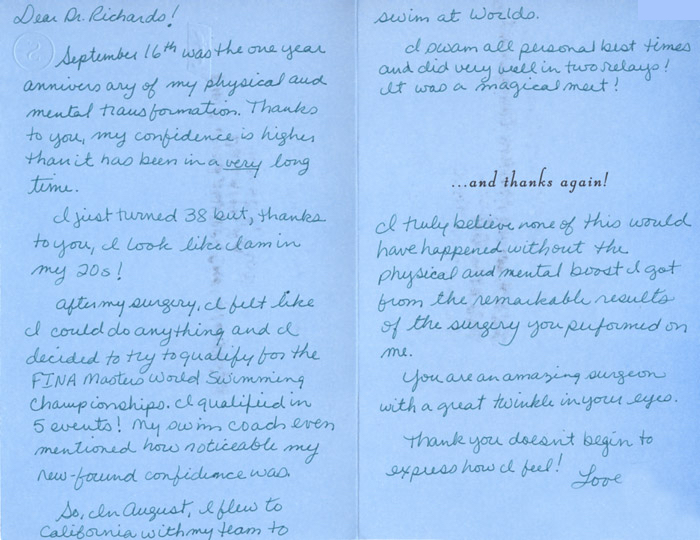 Dear Dr. Richards!
September 16th was the one year
anniversary of my physical and
mental transformation. Thanks
to you, my confidence is higher
than it has been in a very long
time.
I just turned 38 but, thanks
to you, I look like I am in
my 20s!
After my surgery, I felt like
I could do anything and I
decided to try to qualify for the
FINA Masters World Swimming
Championships. I qualified in
5 events! My swim coach even
mentioned how noticeable my
new-found confidence was.
So, in August, I flew to
California with my team to
swim at Worlds.
I swam all personal best times
and did very well in two relays!
It was a magical meet!
...and thanks again!
I truly believe none of this would
have happened without the
physical and mental boost I got
from the remarkable results
of the surgery you performed on
me.
You are an amazing surgeon
with a great twinkle in your eyes.
Thank you doesn't begin to
express how I feel!
Love